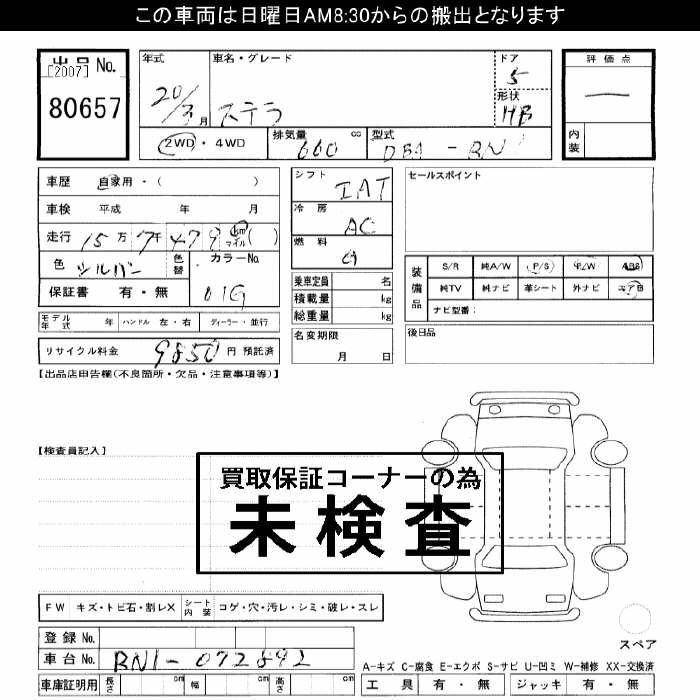 この車両は日曜日AM8:30からの搬出となります
出品 No.
[2007]
80657
年式
20/3月
車名・グレード
ステラ
ドア
5
形状
HB
2WD ・ 4WD
排気量
660 cc
型式
DBA - RN1
評価点
一
内装
車歴 自家用・( )
車検 平成 年 月
走行 15万7千479 km マイル ( )
色 シルバー
色替
カラーNo.
01G
保証書 有・無
モデル年式 年 ハンドル 左・右 ディーラー・並行
リサイクル料金 9850 円 預託済
シフト
IAT
冷房
AC
燃料
G
乗車定員 名
積載量 kg
総重量 kg
名変期限
月 日
セールスポイント
装備品
S/R 純A/W P/S P/W ABS
純TV 純ナビ 革シート 外ナビ エアB
ナビ型番:
後日品
【出品店申告欄(不良箇所・欠品・注意事項等)】
【検査員記入】
買取保証コーナーの為
未検査
FW キズ・トビ石・割レX シート内装 コゲ・穴・汚レ・シミ・破レ・スレ
登録 No.
車台 No. RN1-072892
車庫証明用 長さ cm 幅 cm 高さ cm
スペア
A-キズ C-腐食 E-エクボ S-サビ U-凹ミ W-補修 XX-交換済
工具 有・無 ジャッキ 有・無